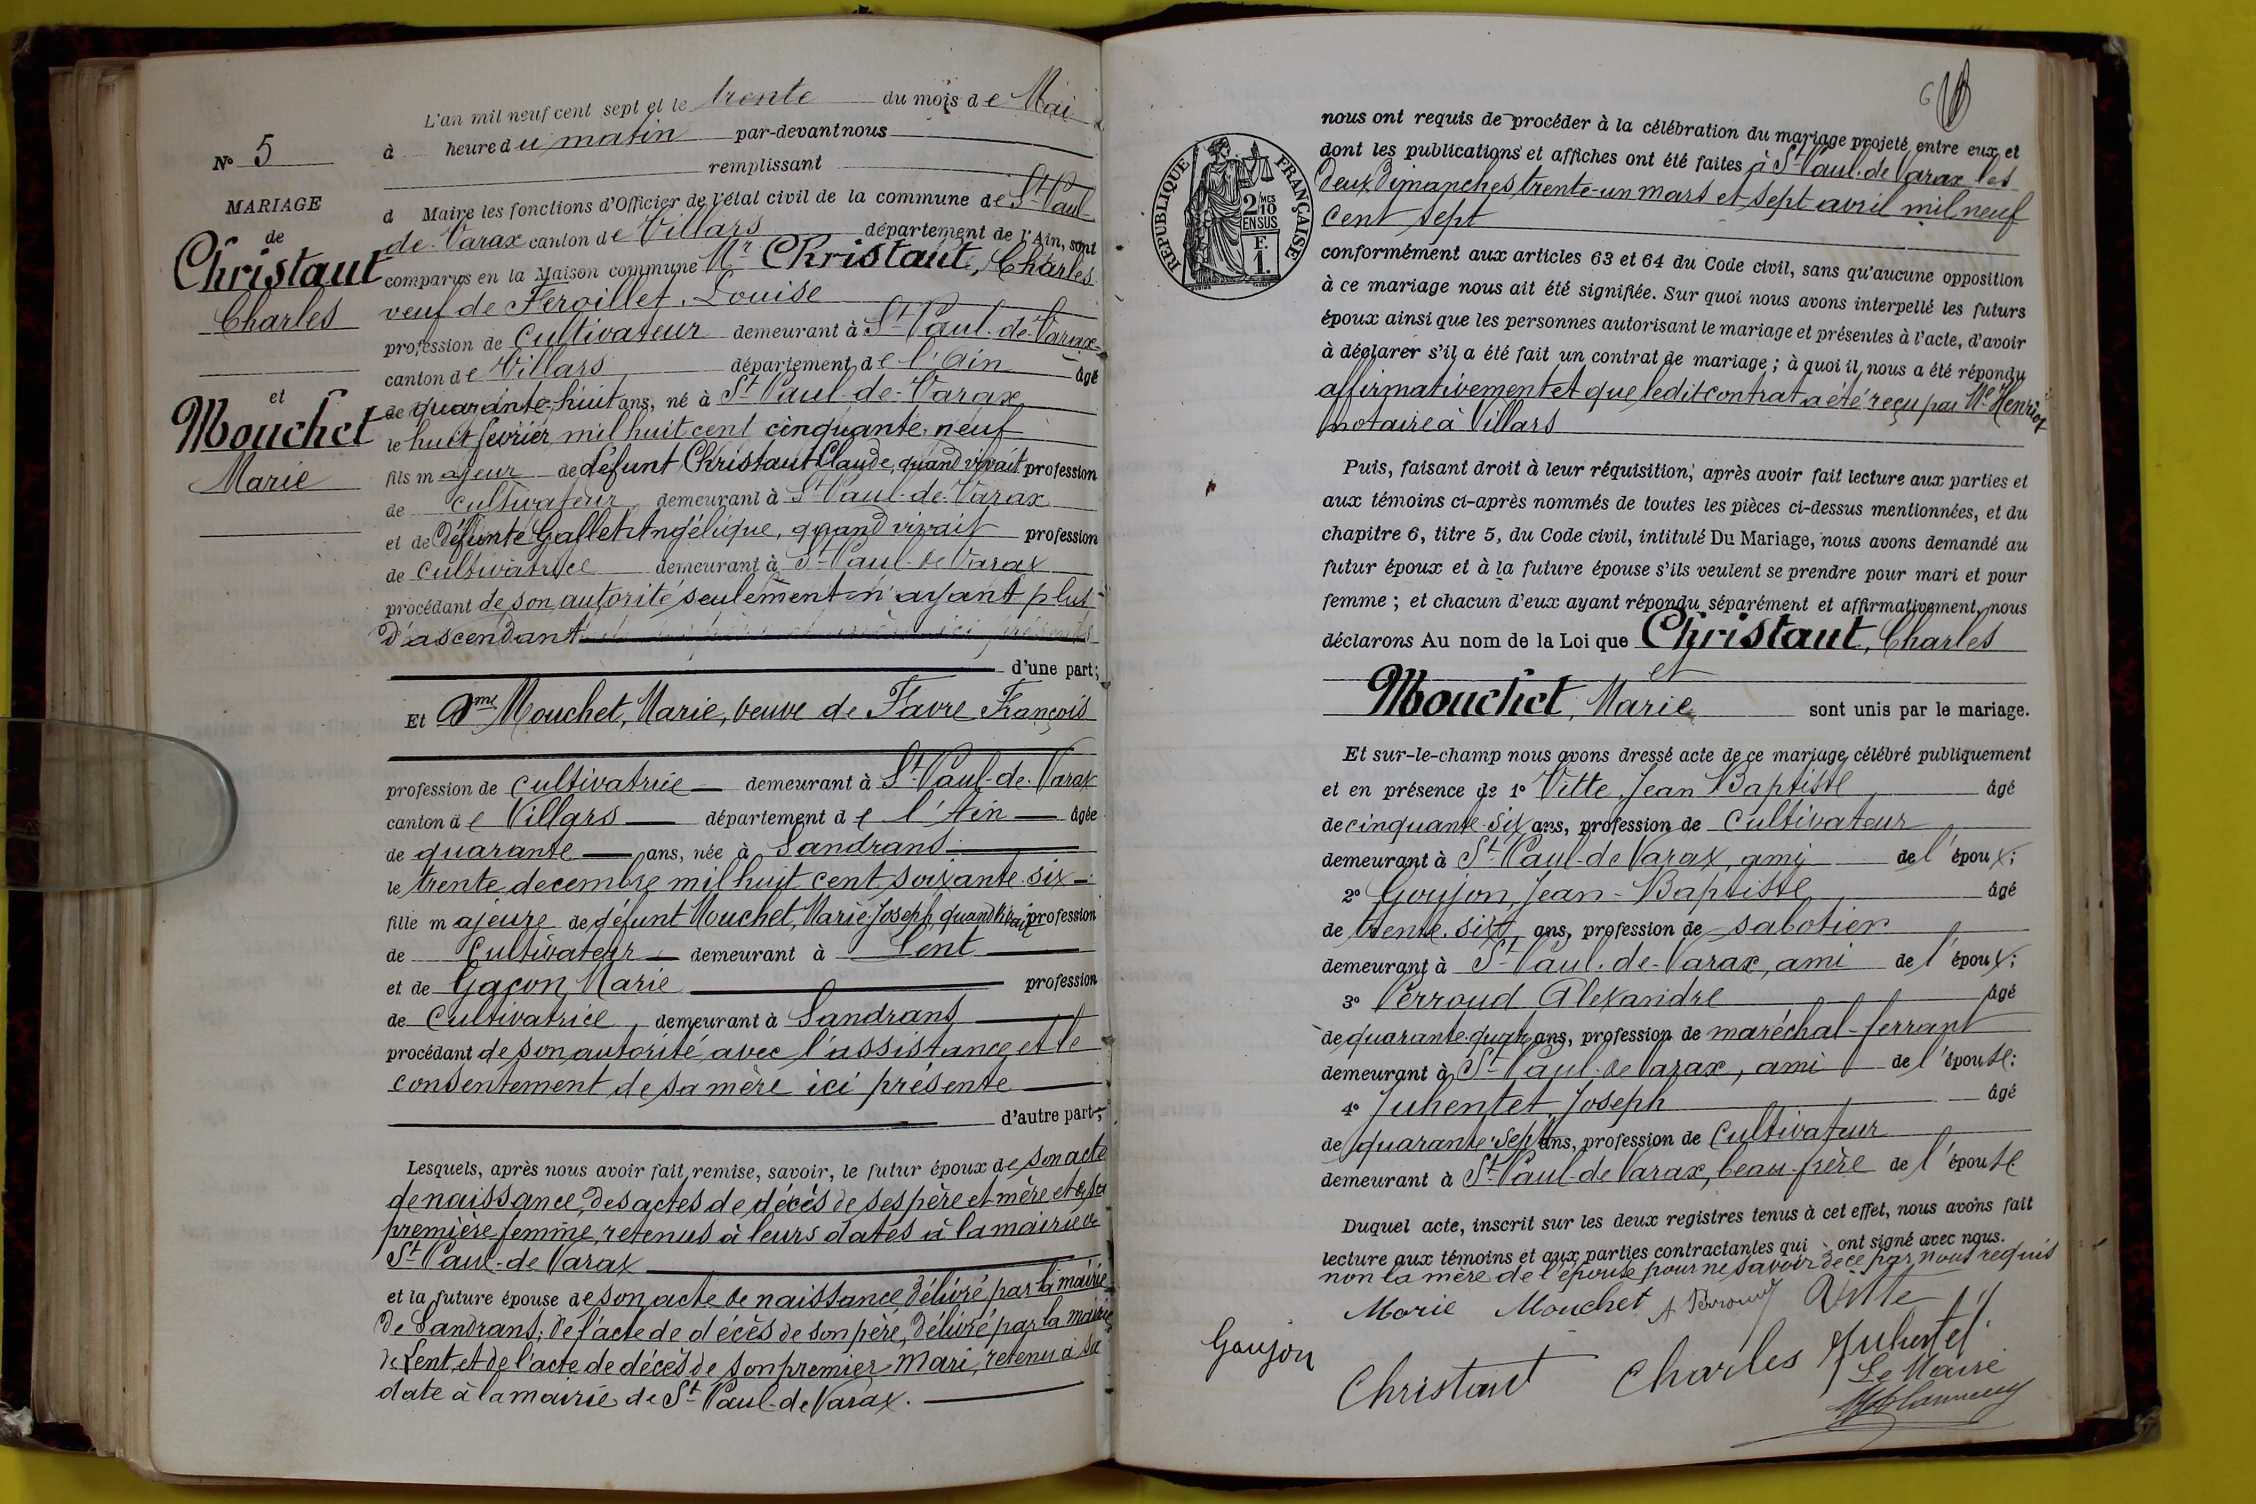 L'an mil neuf cent sept et le trente du mois de Mai
à heure du matin par-devant nous
remplissant
d Maire les fonctions d'Officier de l'état civil de la commune de St Paul-
de-Varax canton de Villars département de l'Ain, sont
comparus en la Maison commune Mr Christaut, Charles
veuf de Feroillet, Louise
profession de cultivateur demeurant à St Paul-de-Varax
canton de Villars département de l'Ain âgé
de quarante-huit ans, né à St Paul-de-Varax
le huit février mil huit cent cinquante-neuf
fils majeur de défunt Christaut Claude, quand vivait profession
de cultivateur demeurant à St Paul-de-Varax
et de Défunte Gallet Angélique, quand vivait profession
de cultivatrice demeurant à St Paul-de-Varax
procédant de son autorité seulement n'ayant plus
d'ascendant
d'une part;
Et Dme Mouchet, Marie, veuve de Favre François
profession de cultivatrice demeurant à St Paul-de-Varax
canton de Villars département de l'Ain âgée
de quarante ans, née à Sandrans
le trente decembre mil huit cent soixante-six
fille majeure de défunt Mouchet, Marie-Joseph, quand vivait profession
de cultivateur demeurant à Lent
et de Gaçon, Marie profession
de cultivatrice demeurant à Sandrans
procédant de son autorité avec l'assistance et le
consentement de sa mère ici présente
d'autre part;
Lesquels, après nous avoir fait remise, savoir, le futur époux de son acte
de naissance, des actes de décès de ses père et mère et de sa
première femme, retenus à leurs dates à la mairie de
St Paul-de-Varax
et la future épouse de son acte de naissance, délivré par la mairie
de Sandrans; de l'acte de décès de son père, délivré par la mairie
de Lent, et de l'acte de décès de son premier mari, retenu à sa
date à la mairie de St Paul-de-Varax.
N° 5
MARIAGE
de
Christaut
Charles
et
Mouchet
Marie
6
RÉPUBLIQUE FRANÇAISE
2 MES
10
EN SUS
F.
1.
nous ont requis de procéder à la célébration du mariage projeté entre eux et
dont les publications et affiches ont été faites à St Paul-de-Varax les
deux Dimanches trente-un mars et sept avril mil neuf
cent sept
conformément aux articles 63 et 64 du Code civil, sans qu'aucune opposition
à ce mariage nous ait été signifiée. Sur quoi nous avons interpellé les futurs
époux ainsi que les personnes autorisant le mariage et présentes à l'acte, d'avoir
à déclarer s'il a été fait un contrat de mariage; à quoi il nous a été répondu
affirmativement et que ledit contrat a été reçu par Me Henriot
notaire à Villars
Puis, faisant droit à leur réquisition, après avoir fait lecture aux parties et
aux témoins ci-après nommés de toutes les pièces ci-dessus mentionnées, et du
chapitre 6, titre 5, du Code civil, intitulé Du Mariage, nous avons demandé au
futur époux et à la future épouse s'ils veulent se prendre pour mari et pour
femme; et chacun d'eux ayant répondu séparément et affirmativement, nous
déclarons Au nom de la Loi que Christaut, Charles
et
Mouchet, Marie sont unis par le mariage.
Et sur-le-champ nous avons dressé acte de ce mariage célébré publiquement
et en présence de 1° Vitte, Jean Baptiste âgé
de cinquante-six ans, profession de cultivateur
demeurant à St Paul-de-Varax, ami de l'époux;
2° Goujon, Jean-Baptiste âgé
de trente-six ans, profession de sabotier
demeurant à St Paul-de-Varax, ami de l'époux;
3° Perroud Alexandre âgé
de quarante-quatre ans, profession de maréchal-ferrant
demeurant à St Paul-de-Varax, ami de l'épouse:
4° Juhentet, Joseph âgé
de quarante-sept ans, profession de cultivateur
demeurant à St Paul-de-Varax, beau-frère de l'épouse
Duquel acte, inscrit sur les deux registres tenus à cet effet, nous avons fait
lecture aux témoins et aux parties contractantes qui ont signé avec nous.
non la mère de l'épouse pour ne savoir de ce par nous requis
Marie Mouchet A Perroud Vitte
Goujon
Christaut Charles Juhentet
Le Maire